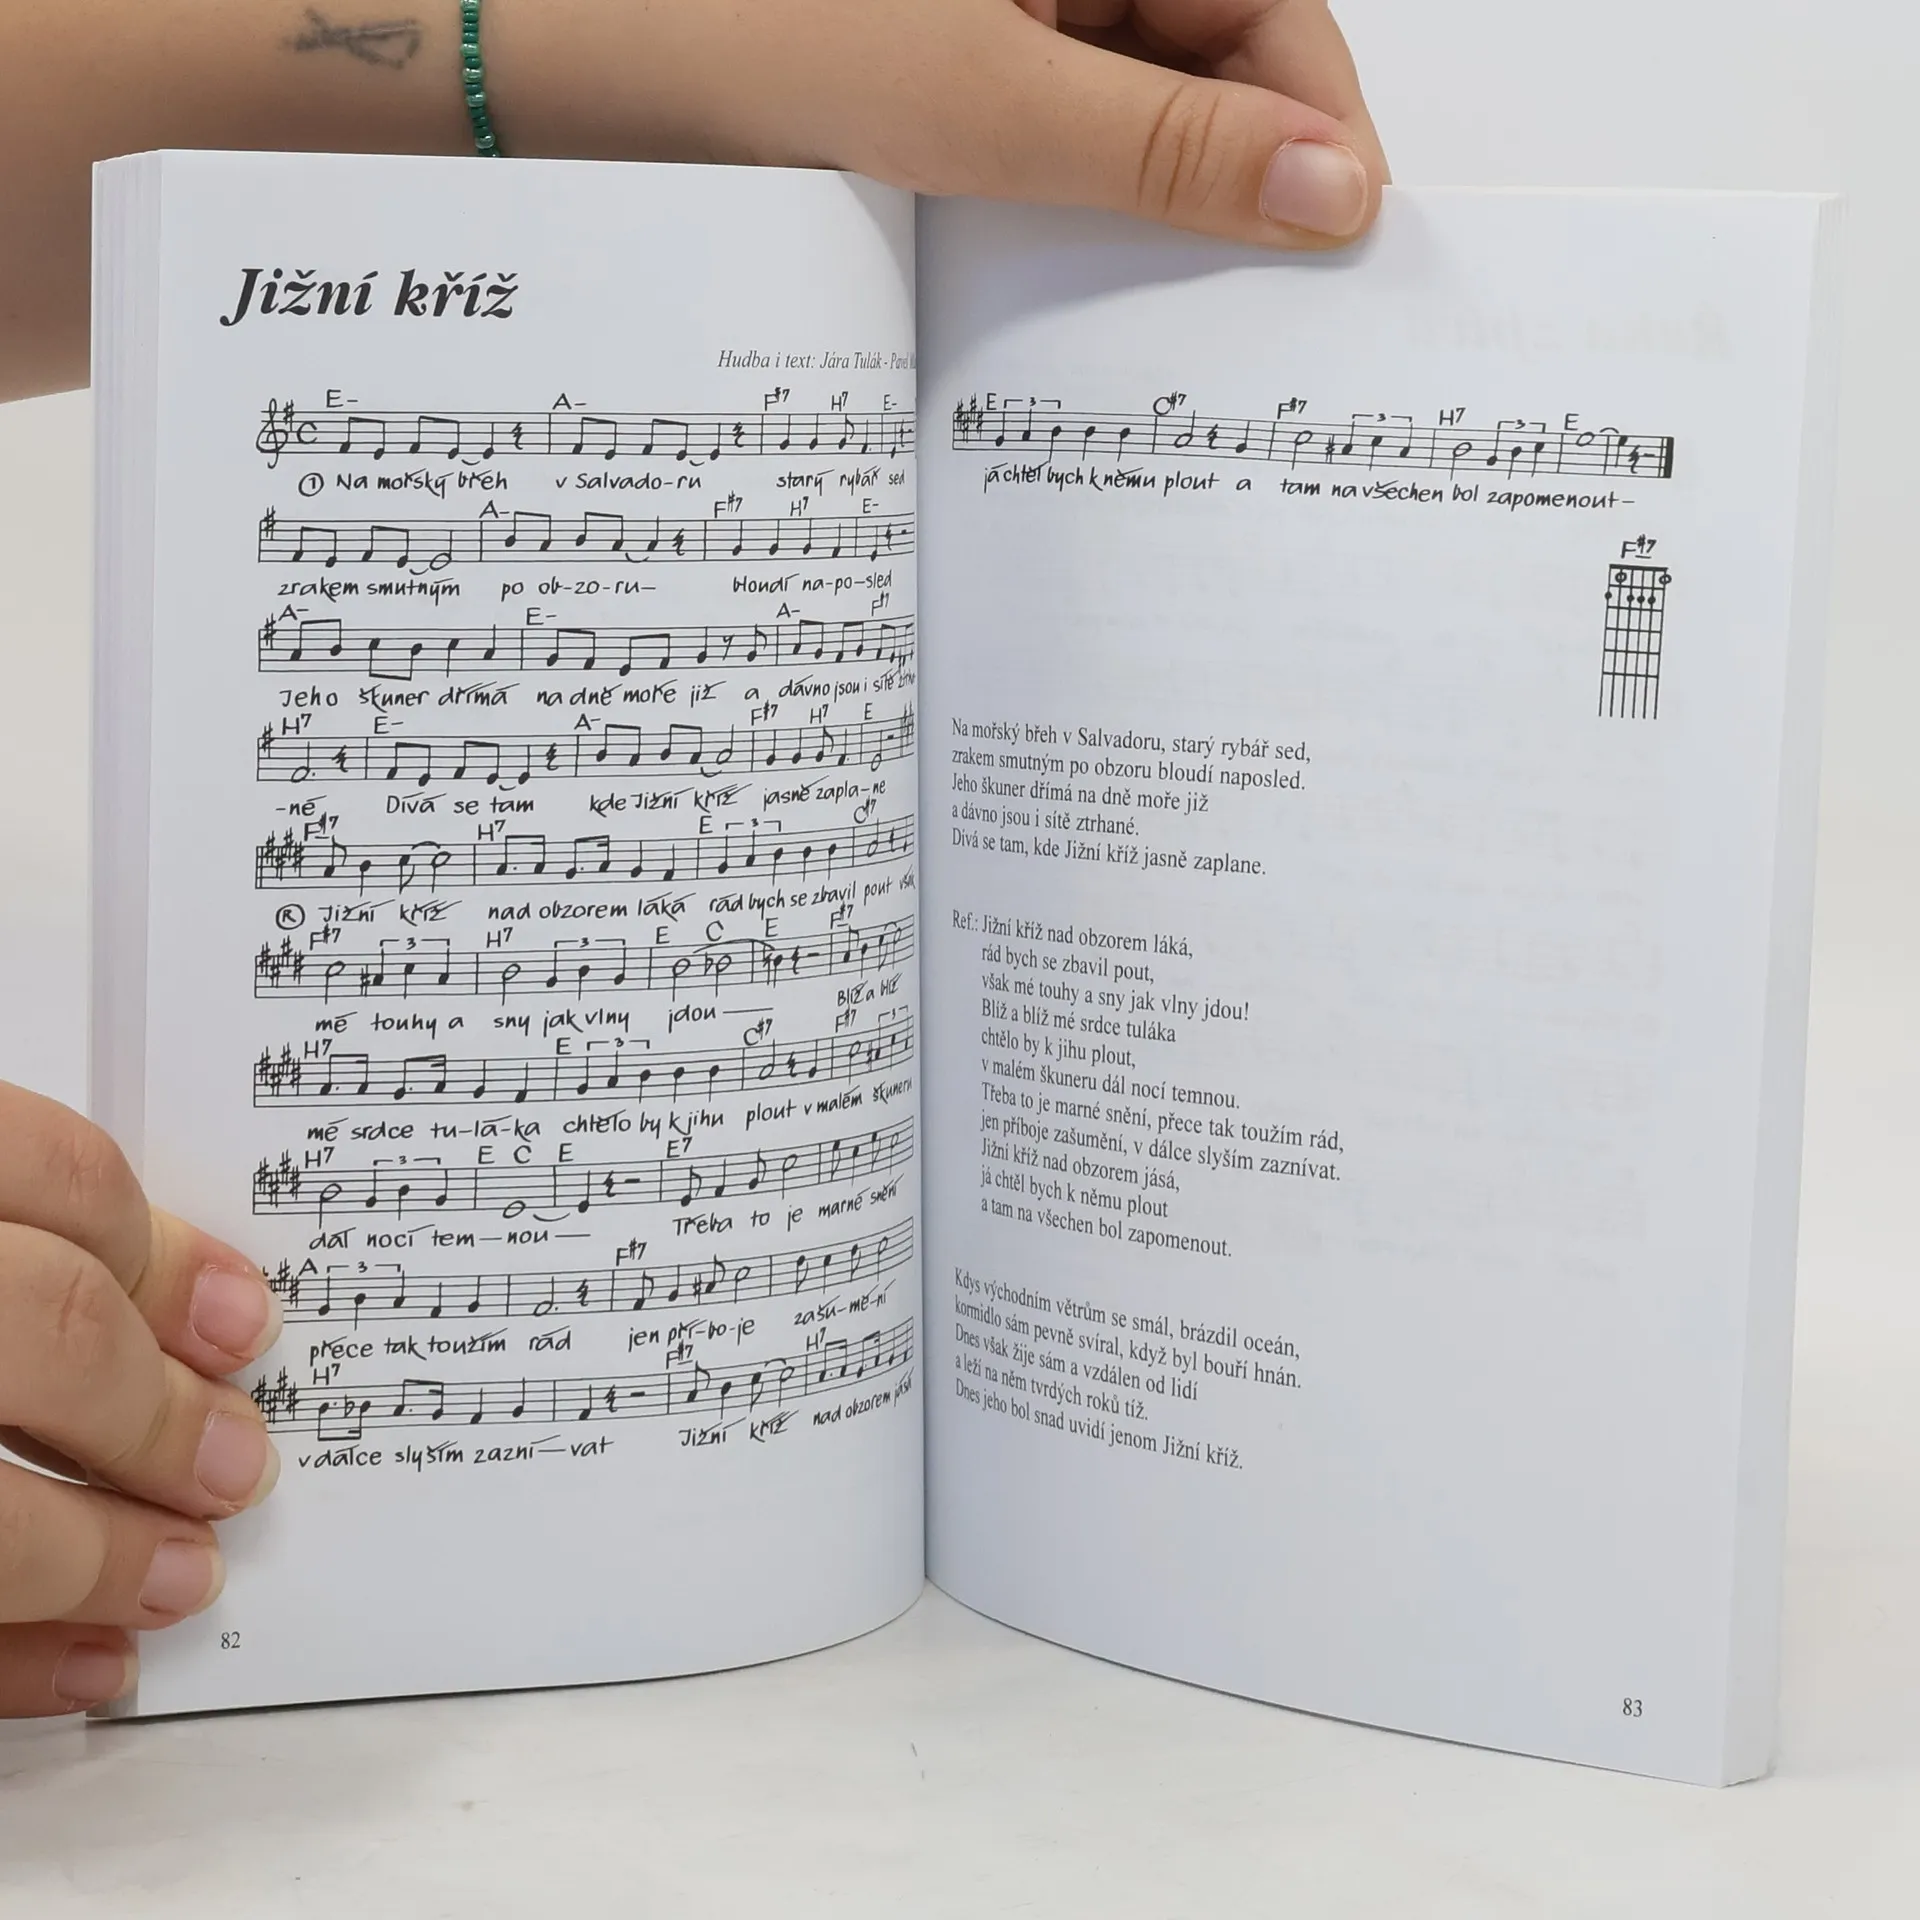 Jižní kříž
Hudba i text: Jára Tulák - Pavel
E- A- F#7 H7 E-
① Na mořský břeh v Salvado-ru starý rybář sed
A- F#7 H7 E-
zrakem smutným po ob-zo-ru- bloudí na-po-sled
A- E- A- F#7
Jeho škuner dřímá na dně moře již a dávno jsou i sítě
H7 E- A- F#7 H7 E
-né Dívá se tam kde Jižní kříž jasně zapla-ne
F#7 H7 E 3 C#7
Ⓡ Jižní kříž nad obzorem láká rád bych se zbavil pout však
F#7 3 H7 3 E C E F#7
mé touhy a sny jak vlny jdou — Blíž a blíž
H7 E 3 C#7 F#7 3
mé srdce tu-lá-ka chtělo by k jihu plout v malém škuneru
H7 3 E C E E7
dál nocí tem-nou- Třeba to je marné snění
A 3 F#7
přece tak toužím rád jen pří-bo-je zašu-mě-ní
H7 F#7 H7
v dálce slyším zazní-vat Jižní kříž nad obzorem jásá
82
E 3 C#7 F#7 3 H7 3 E
já chtěl bych k němu plout a tam na všechen bol zapomenout-
F#7
Na mořský břeh v Salvadoru, starý rybář sed,
zrakem smutným po obzoru bloudí naposled.
Jeho škuner dřímá na dně moře již
a dávno jsou i sítě ztrhané.
Dívá se tam, kde Jižní kříž jasně zaplane.
Ref.: Jižní kříž nad obzorem láká,
rád bych se zbavil pout,
však mé touhy a sny jak vlny jdou!
Blíž a blíž mé srdce tuláka
chtělo by k jihu plout,
v malém škuneru dál nocí temnou.
Třeba to je marné snění, přece tak toužím rád,
jen příboje zašumění, v dálce slyším zaznívat.
Jižní kříž nad obzorem jásá,
já chtěl bych k němu plout
a tam na všechen bol zapomenout.
Kdys východním větrům se smál, brázdil oceán,
kormidlo sám pevně svíral, když byl bouří hnán.
Dnes však žije sám a vzdálen od lidí
a leží na něm tvrdých roků tíž.
Dnes jeho bol snad uvidí jenom Jižní kříž.
83